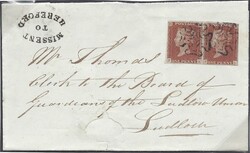 MISSENT
TO
HEREFORD
Mr Thomas
Clerk to the Board of
Guardians of the Ludlow Union
Ludlow